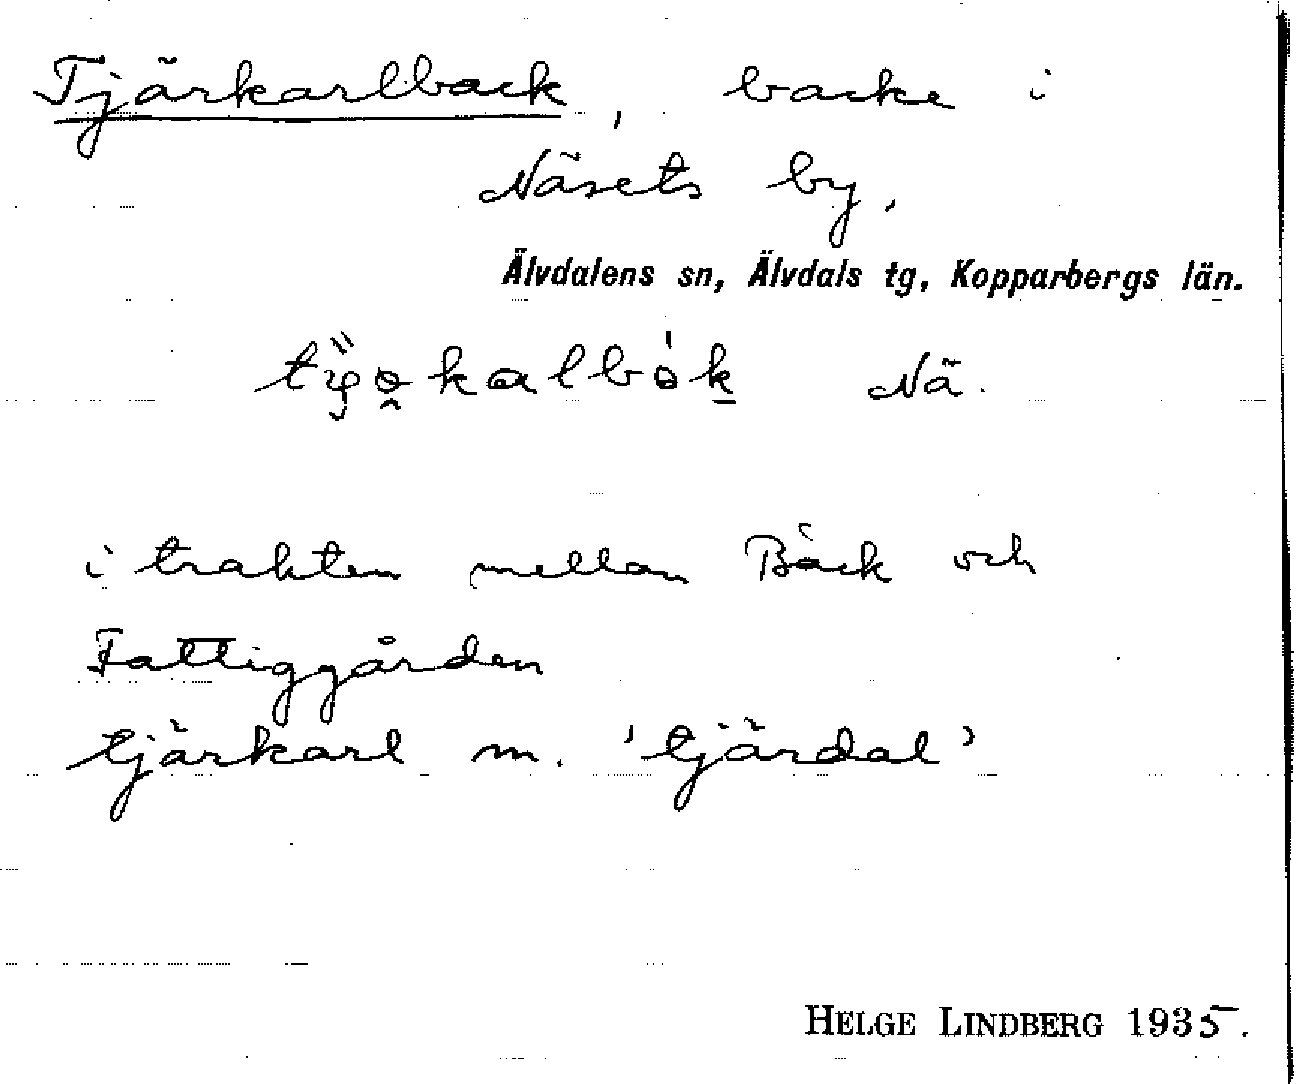 Tjärkarlback, backe i
Näsets by.
Älvdalens sn, Älvdals tg, Kopparbergs län.
Nä.
i trakten mellan Bäck och
Fattiggården
tjärkarl m. 'tjärdal'
HELGE LINDBERG 1935.